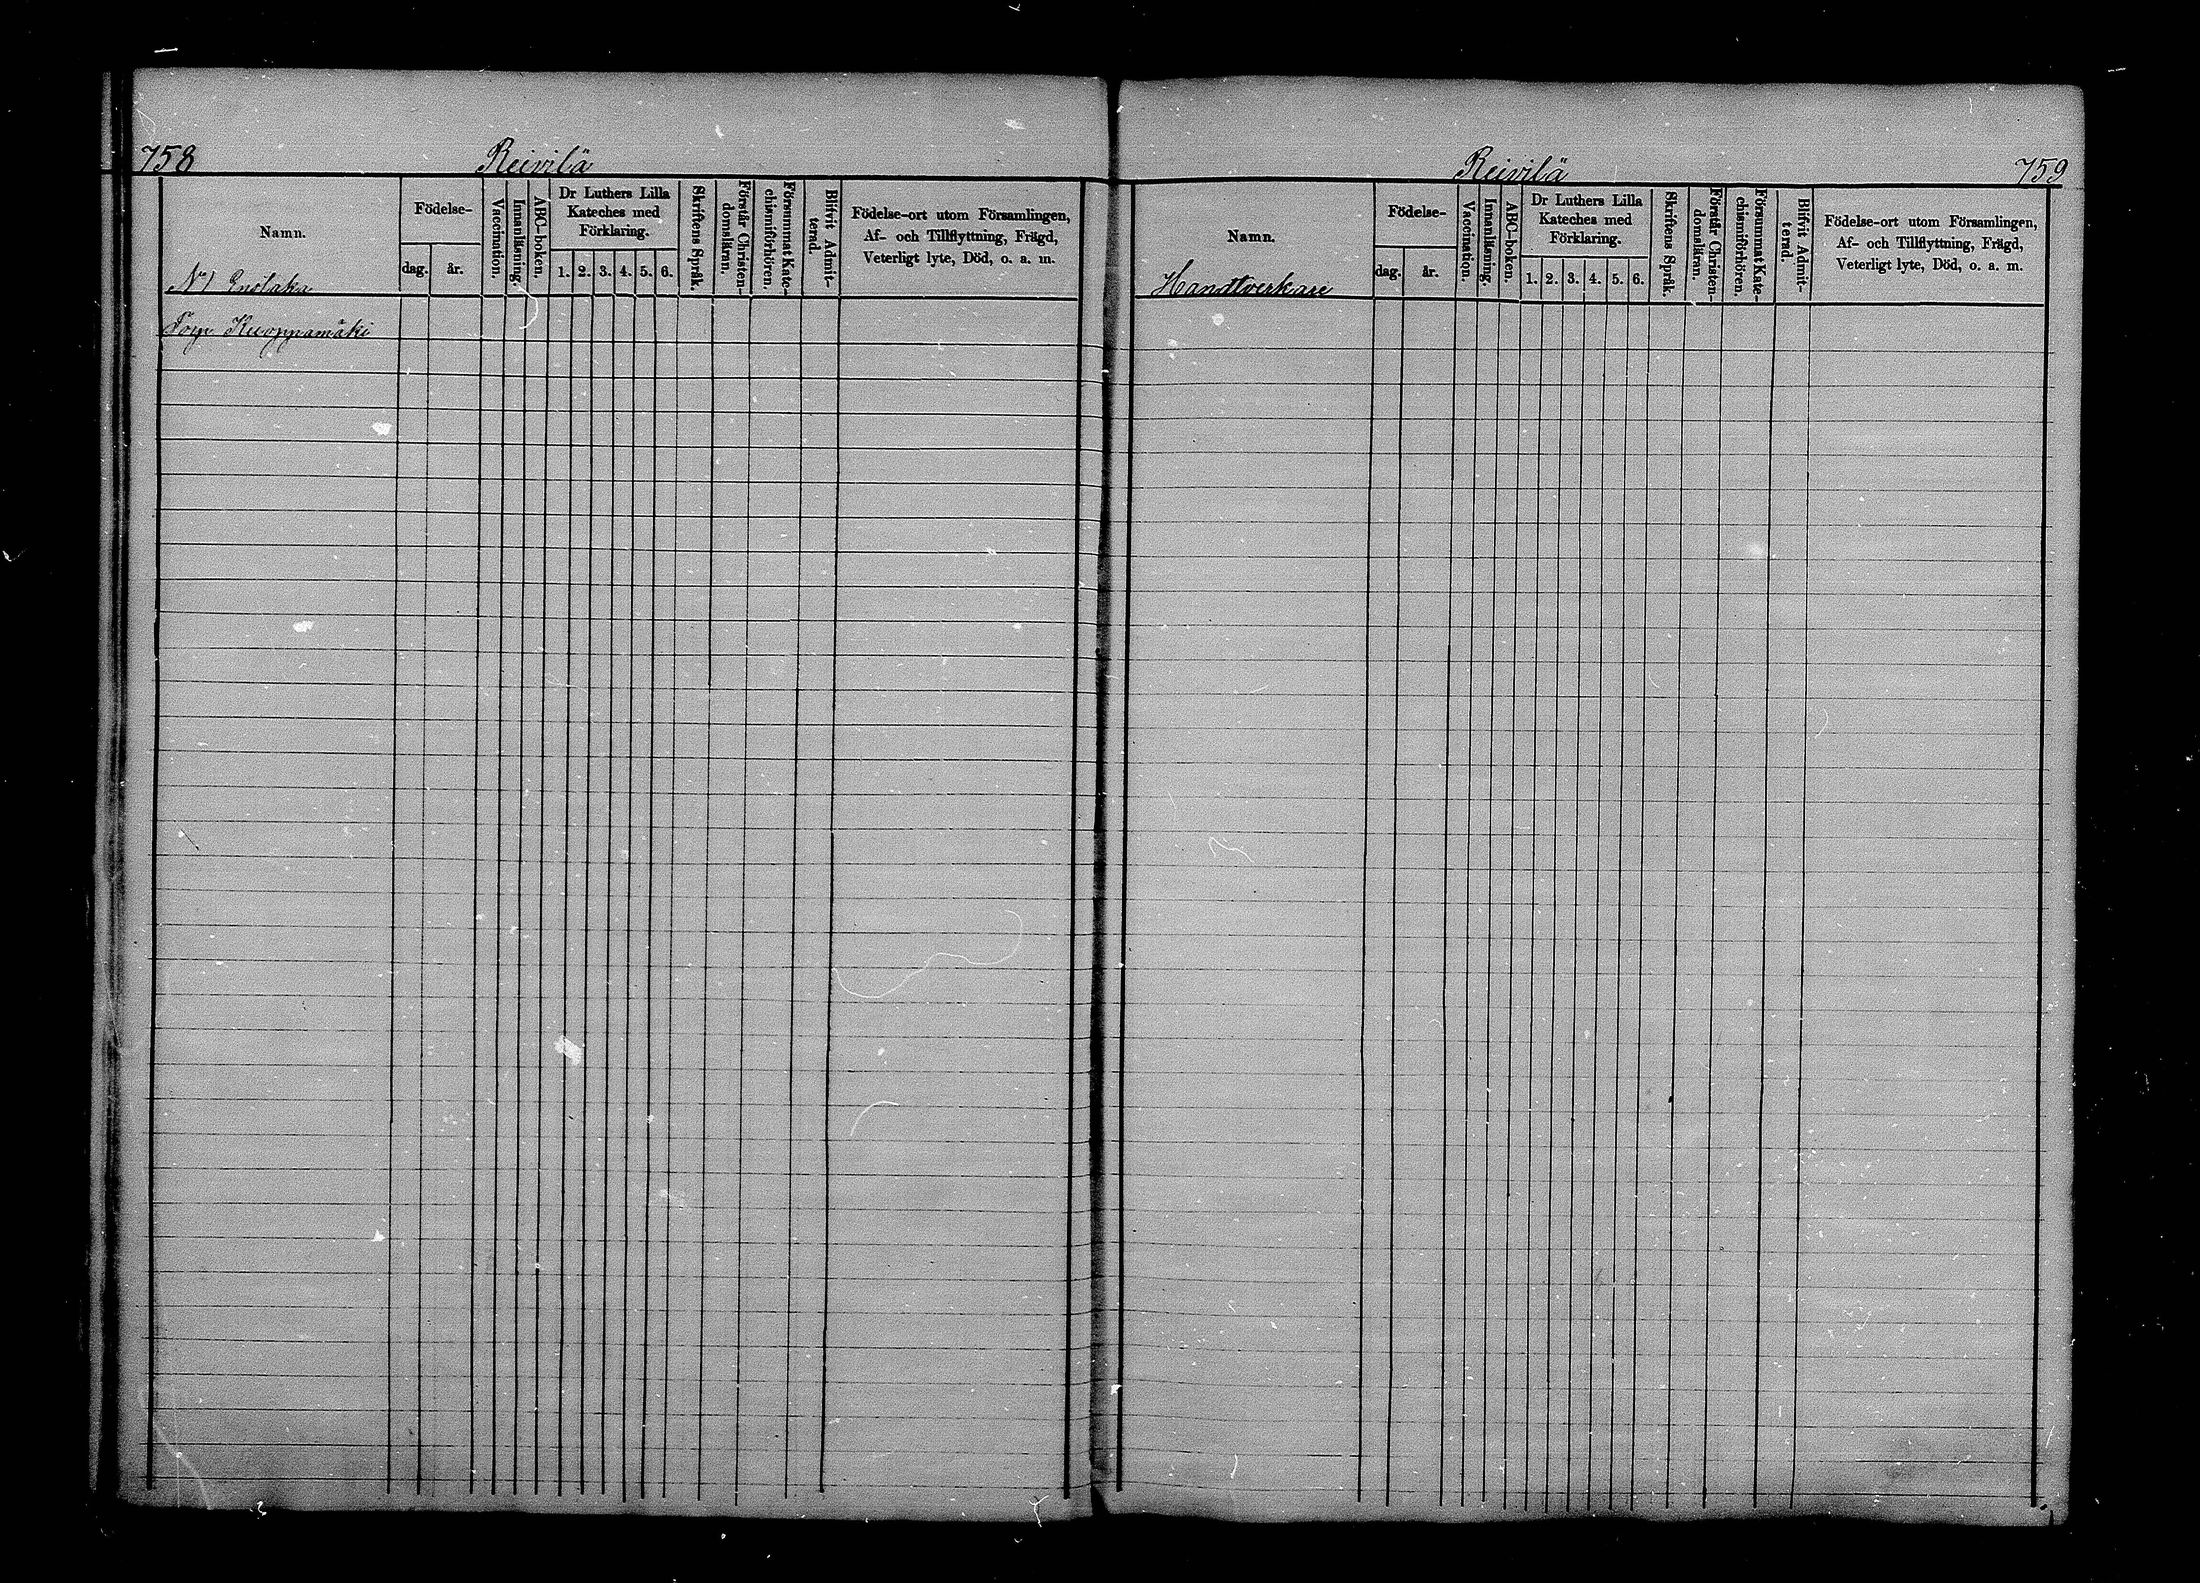 758
Reivilä
Namn.
Födelse-
dag.
år.
Vaccination.
Innanläsning.
ABC-boken.
Dr Luthers Lilla
Kateches med
Förklaring.
1. 2. 3. 4. 5. 6.
Skriftens Språk.
Förstår Christen-
domsläran.
Försummat Kate-
chismiförhören.
Blifvit Admit-
terad.
Födelse-ort utom Församlingen,
Af- och Tillflyttning, Frägd,
Veterligt lyte, Död, o. a. m.
Torp Kuoppamäki
Reivilä
759
Namn.
Handtverkare
Födelse-
dag.
år.
Vaccination.
Innanläsning.
ABC-boken.
Dr Luthers Lilla
Kateches med
Förklaring.
1. 2. 3. 4. 5. 6.
Skriftens Språk.
Förstår Christen-
domsläran.
Försummat Kate-
chismiförhören.
Blifvit Admit-
terad.
Födelse-ort utom Församlingen,
Af- och Tillflyttning, Frägd,
Veterligt lyte, Död, o. a. m.